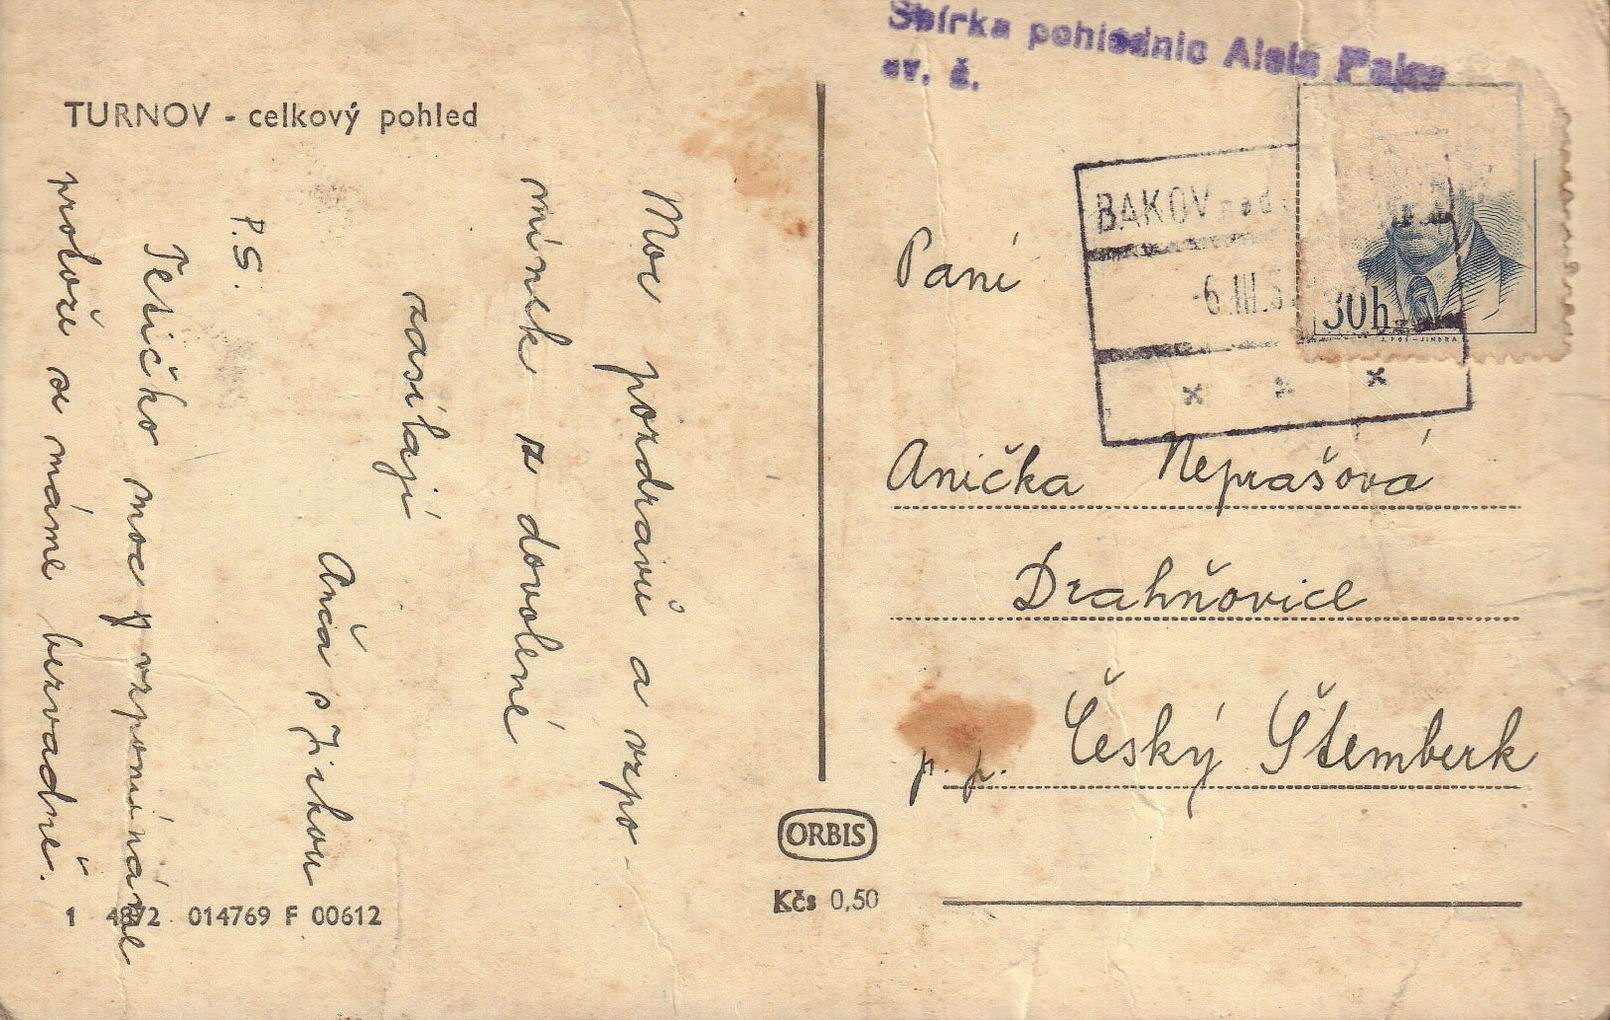 Sbírka pohlednic Aleše
ev. č.
TURNOV - celkový pohled
Moc pozdravů a vzpo-
mínek z dovolené
zasílají
Anča s Jirkou
P.S.
Tetičko moc vzpomínáme
protože se máme bezvadně.
1 4872 014769 F 00612
ORBIS
Kčs 0,50
BAKOV nad
-6.III.5
30h
J. POŠ-JINDRA
Paní
Anička Neprašová
Drahňovice
p. p. Český Štemberk